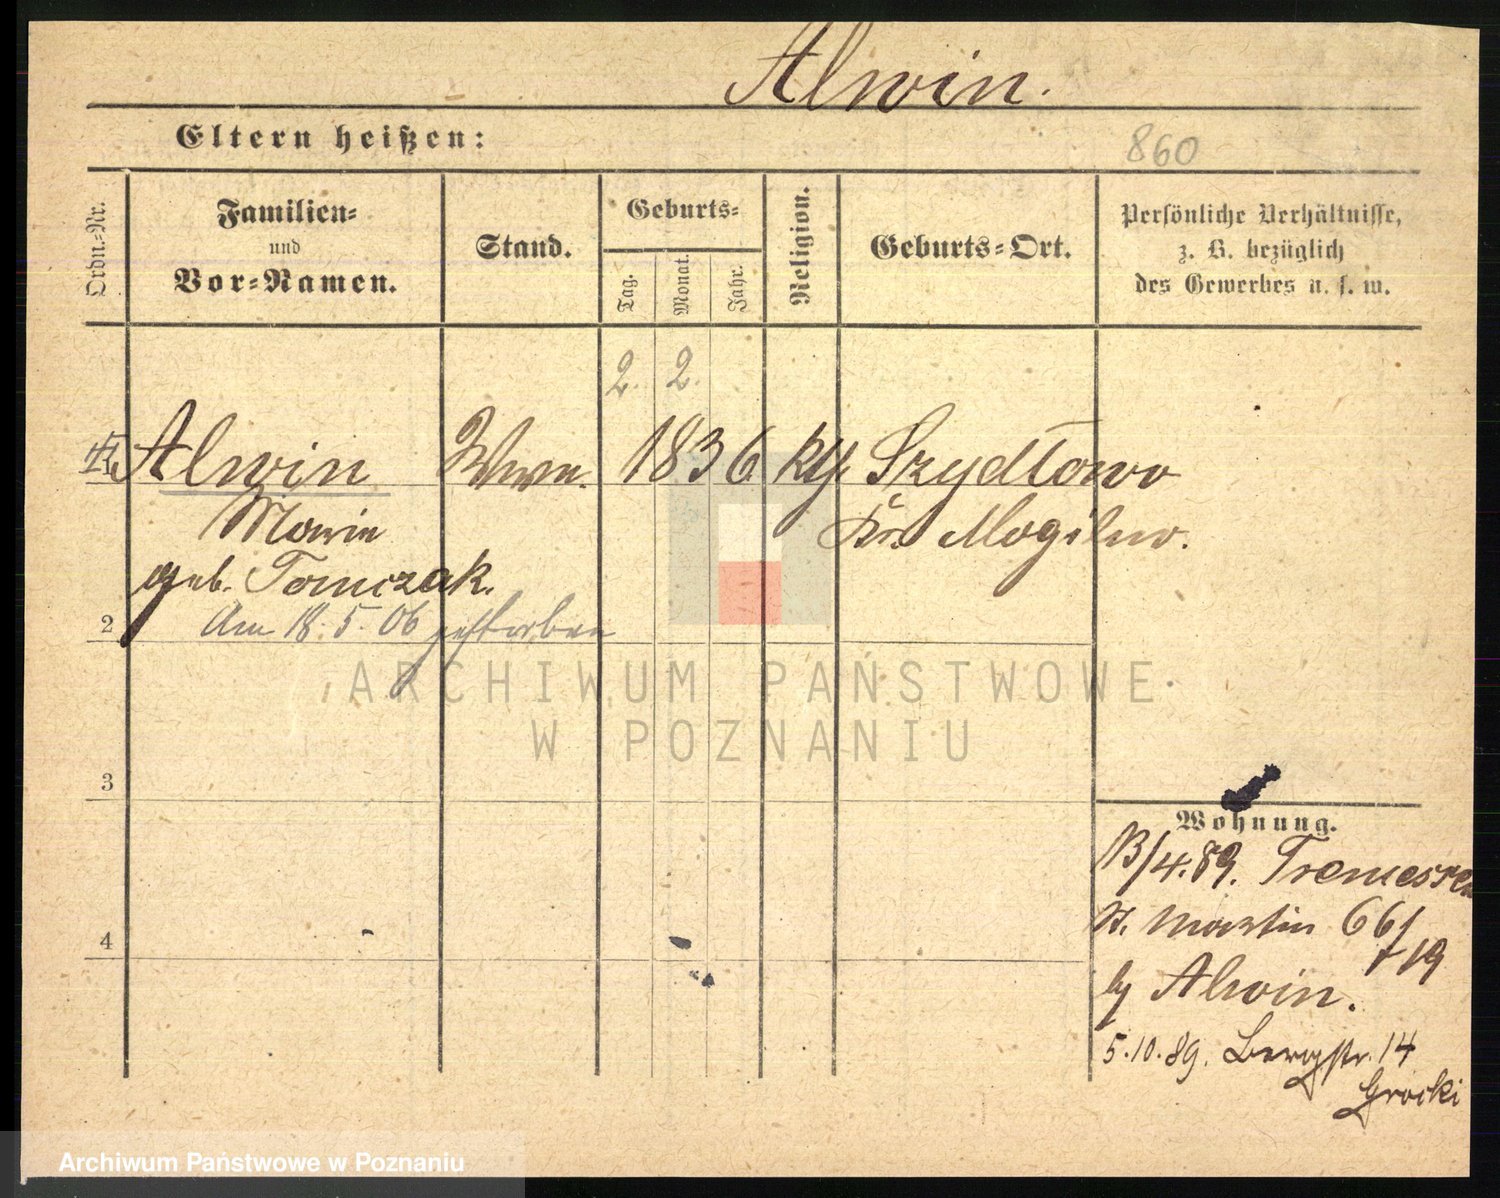 Alwin.
Eltern heißen:
860
Ordn.-Nr.
Familien-
und
Vor-Namen.
Stand.
Geburts-
Tag.
Monat.
Jahr.
Religion.
Geburts-Ort.
Persönliche Verhältnisse,
z. B. bezüglich
des Gewerbes u. s. w.
2. 2.
Alwin Wwe. 1836 kth Szydłowo
Marie Kr. Mogilno.
geb. Tomczak.
2 Am 18. 5. 06 gestorben
ARCHIWUM PAŃSTWOWE
W POZNANIU
3
Wohnung.
13/4.89. Tremessen
St. Martin 66/
19
by Alwin.
4
5.10.89. Bergstr. 14
Grocki
Archiwum Państwowe w Poznaniu